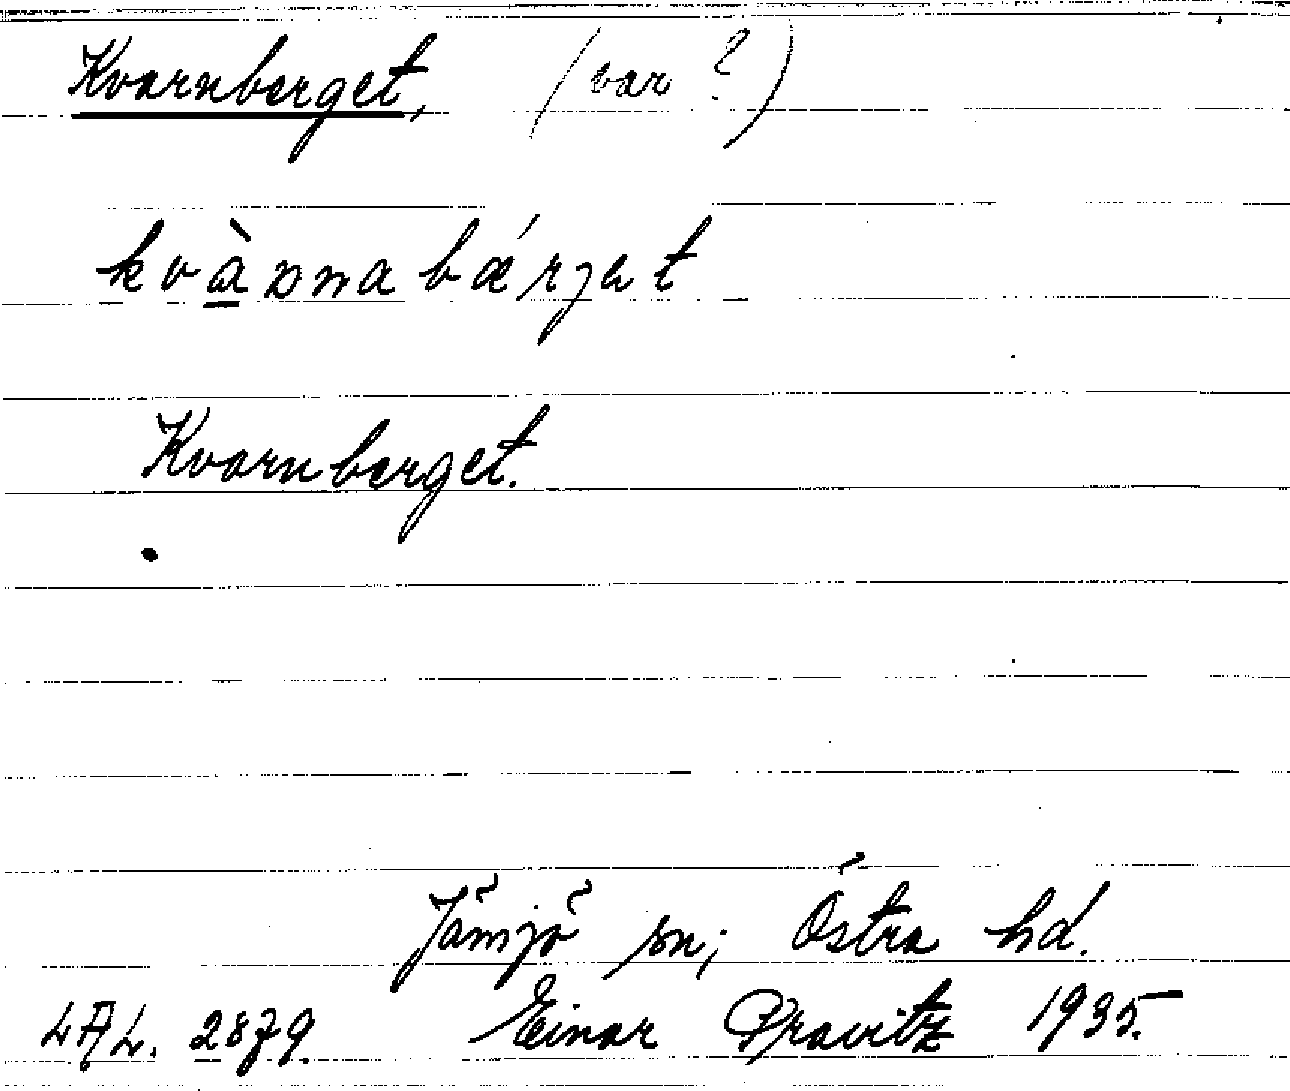 Kvarnberget, (var ?)
kvànnabǽrjet
Kvarnberget.
Jämjö sn; Östra hd.
LAL. 2879. Einar Pravitz 1935.